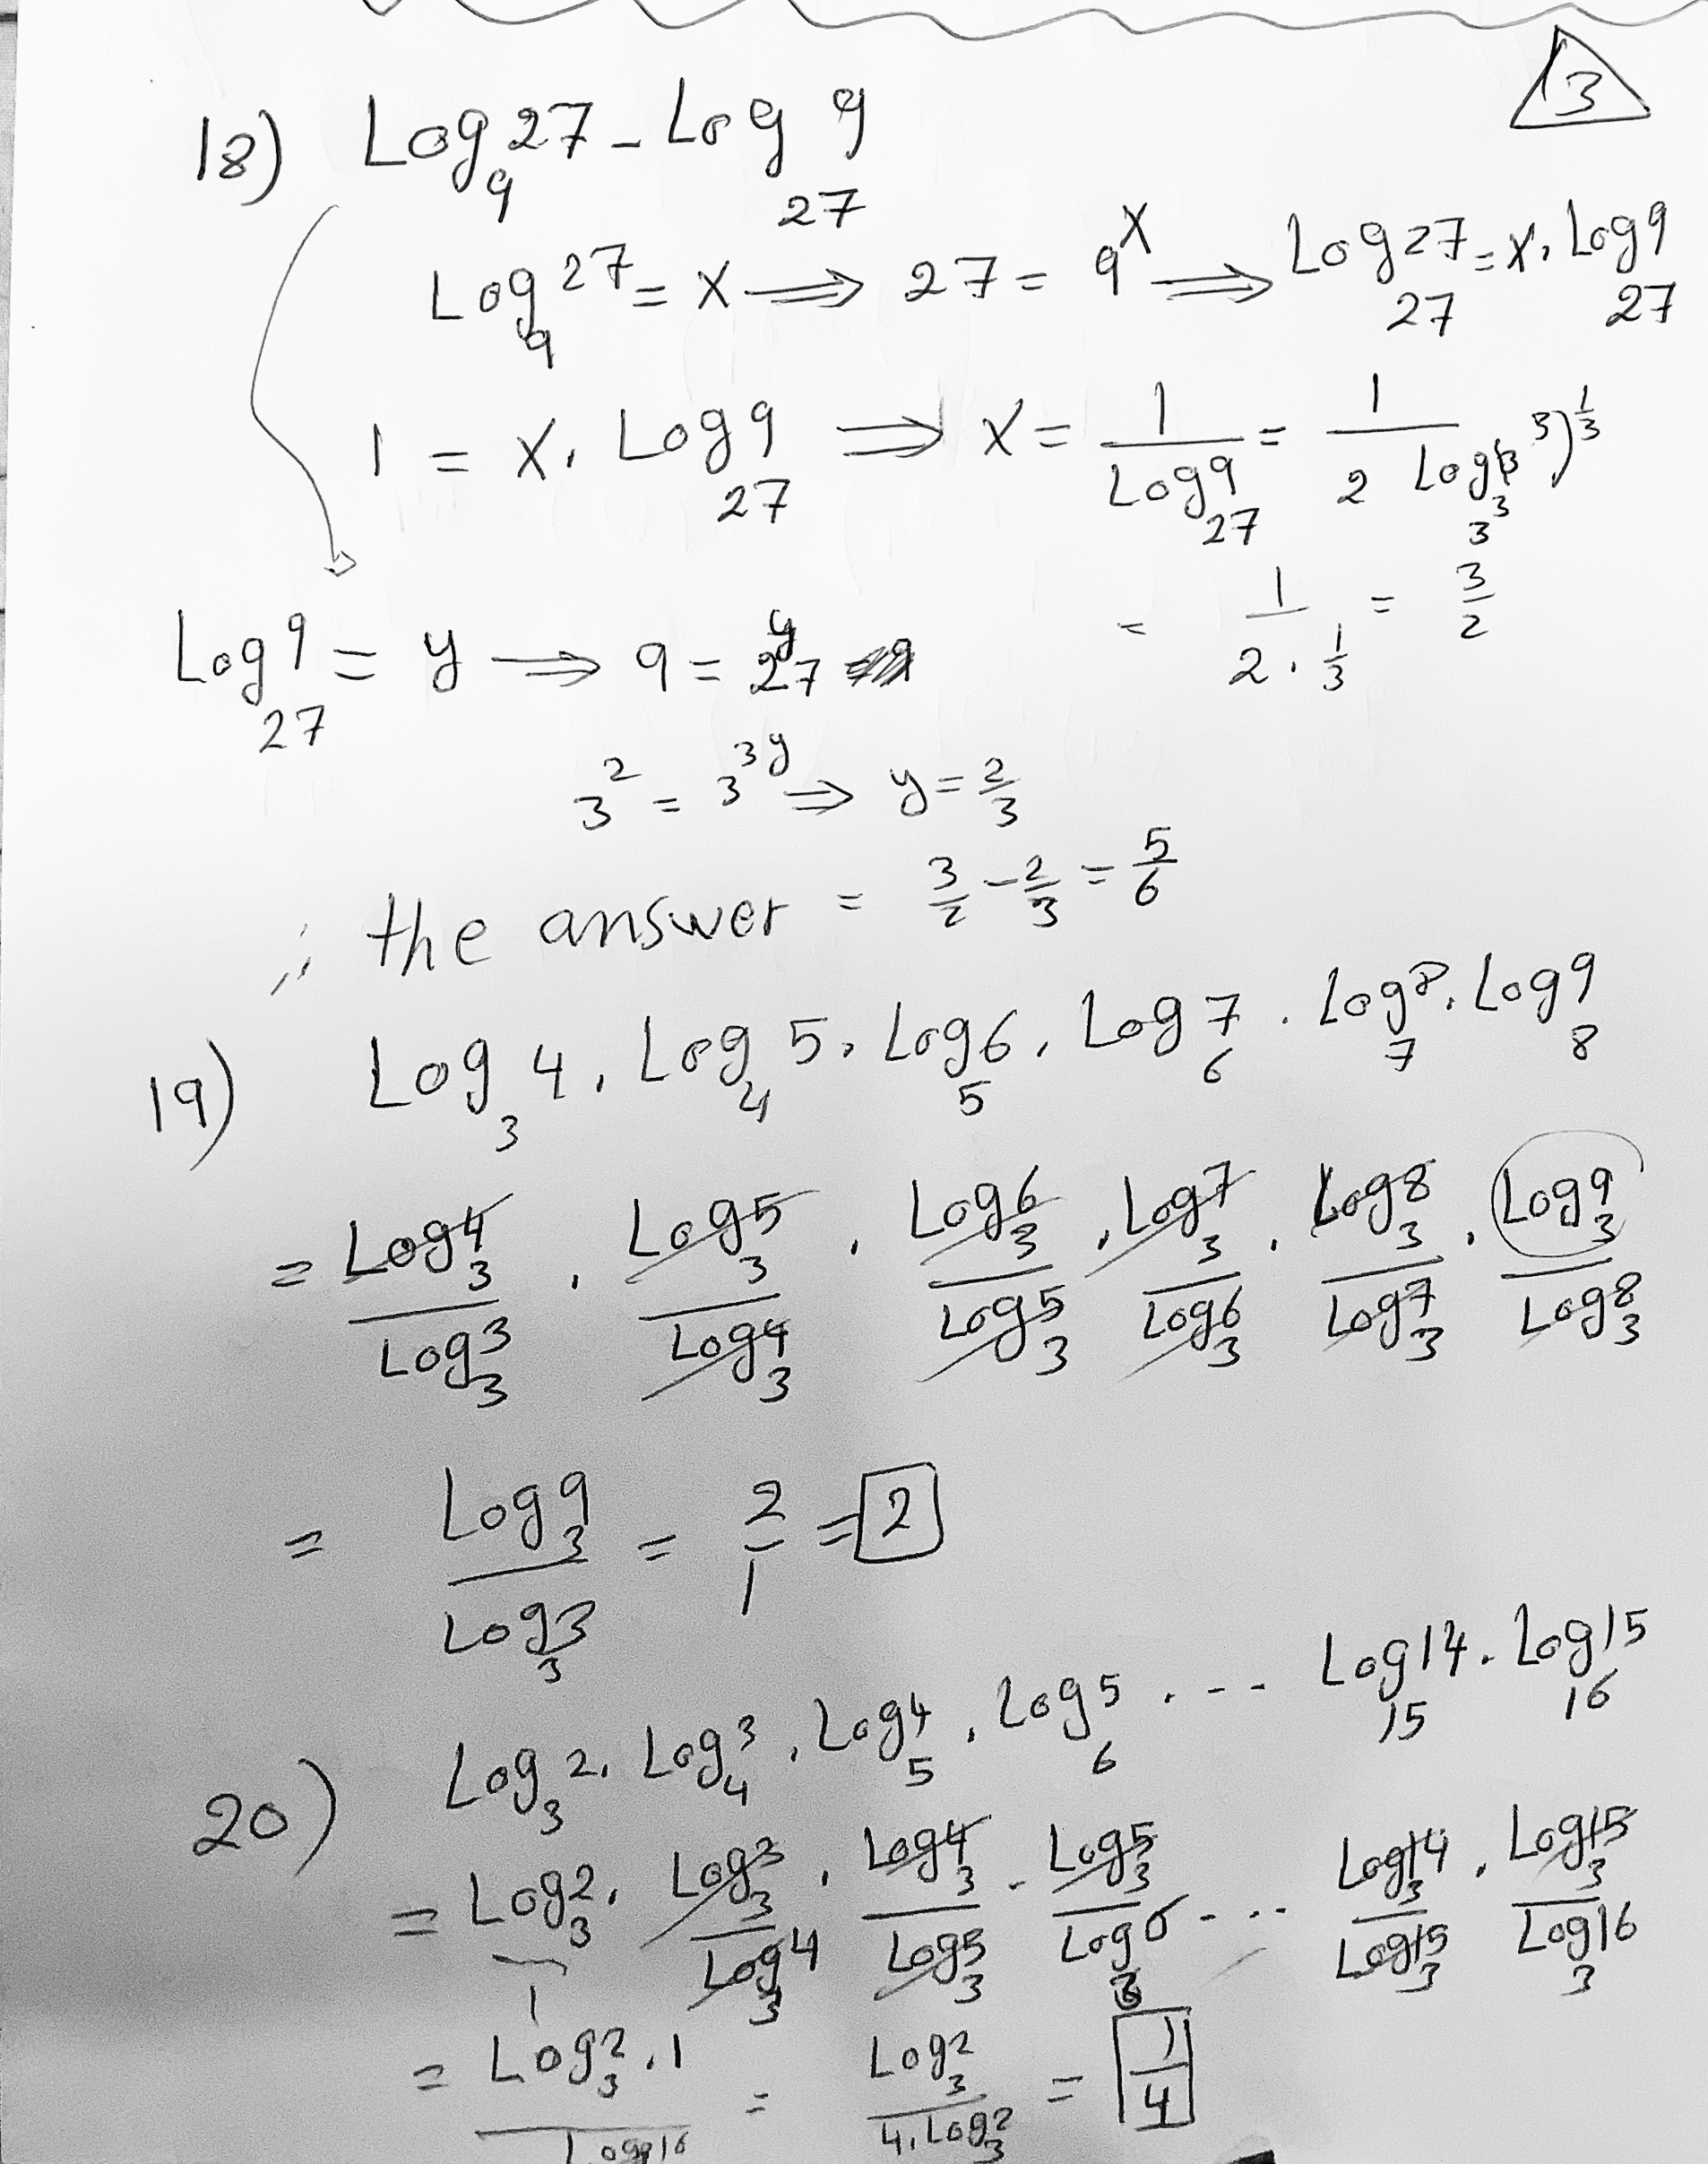 13
18) Log₉ 27 - Log₂₇ 9
Log₉ 27 = x ⟹ 27 = 9ˣ ⟹ Log₂₇ 27 = x . Log₂₇ 9
1 = x . Log₂₇ 9 ⟹ x = 1/Log₂₇ 9 = 1/(2 Log_3³ (3³)^(1/3))
= 1/(2 . 1/3) = 3/2
Log₂₇ 9 = y ⟶ 9 = 27ʸ
3² = 3³ʸ ⟹ y = 2/3
∴ the answer = 3/2 - 2/3 = 5/6
19) Log₃ 4 . Log₄ 5 . Log₅ 6 . Log₆ 7 . Log₇ 8 . Log₈ 9
= Log₃ 4/Log₃ 3 . Log₃ 5/Log₃ 4 . Log₃ 6/Log₃ 5 . Log₃ 7/Log₃ 6 . Log₃ 8/Log₃ 7 . Log₃ 9/Log₃ 8
= Log₃ 9/Log₃ 3 = 2/1 = 2
20) Log₃ 2 . Log₄ 3 . Log₅ 4 . Log₆ 5 . --- Log₁₅ 14 . Log₁₆ 15
= Log₃ 2/1 . Log₃ 3/Log₃ 4 . Log₃ 4/Log₃ 5 . Log₃ 5/Log₃ 6 . --- Log₃ 14/Log₃ 15 . Log₃ 15/Log₃ 16
= Log₃ 2 . 1/Log₃ 16 = Log₃ 2/(4 . Log₃ 2) = 1/4